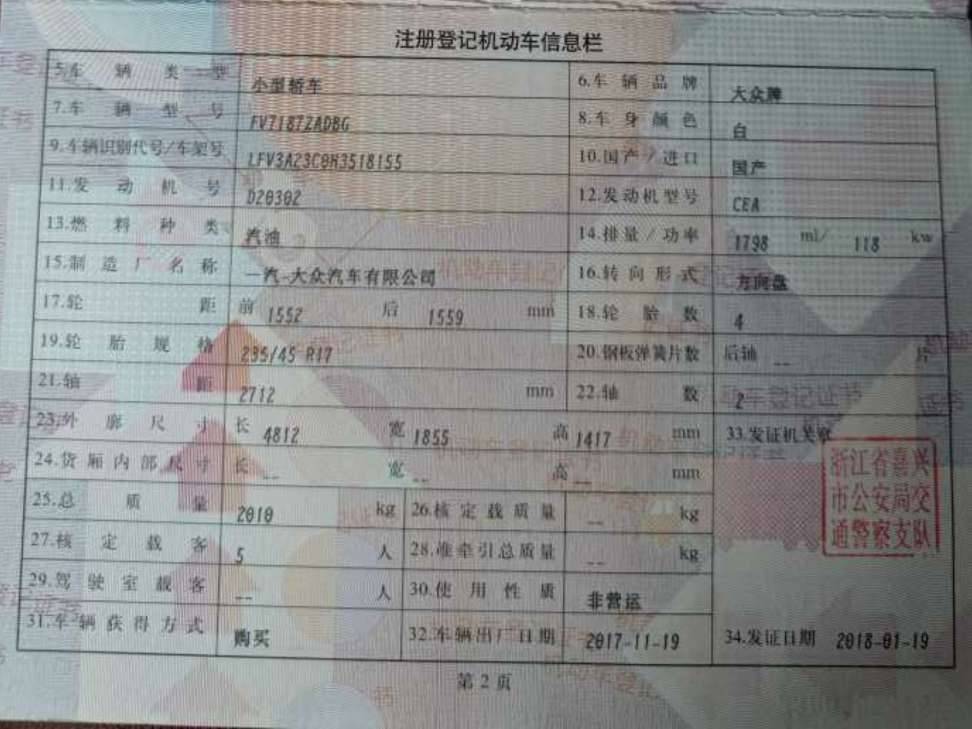 注册登记机动车信息栏
5.车辆类型 小型轿车 6.车辆品牌 大众牌
7.车辆型号 FV7187ZADBG 8.车身颜色 白
9.车辆识别代号/车架号 LFV3A23C0H3518155 10.国产/进口 国产
11.发动机号 D20302 12.发动机型号 CEA
13.燃料种类 汽油 14.排量/功率 1798 ml/ 118 kw
15.制造厂名称 一汽-大众汽车有限公司 16.转向形式 方向盘
17.轮距 前 1552 后 1559 mm 18.轮胎数 4
19.轮胎规格 235/45 R17 20.钢板弹簧片数 后轴 -- 片
21.轴距 2712 mm 22.轴数 2
23.外廓尺寸 长 4812 宽 1855 高 1417 mm 33.发证机关章
24.货厢内部尺寸 长 -- 宽 -- 高 -- mm
浙江省嘉兴
市公安局交
通警察支队
25.总质量 2010 kg 26.核定载质量 -- kg
27.核定载客 5 人 28.准牵引总质量 -- kg
29.驾驶室载客 -- 人 30.使用性质 非营运
31.车辆获得方式 购买 32.车辆出厂日期 2017-11-19 34.发证日期 2018-01-19
第2页